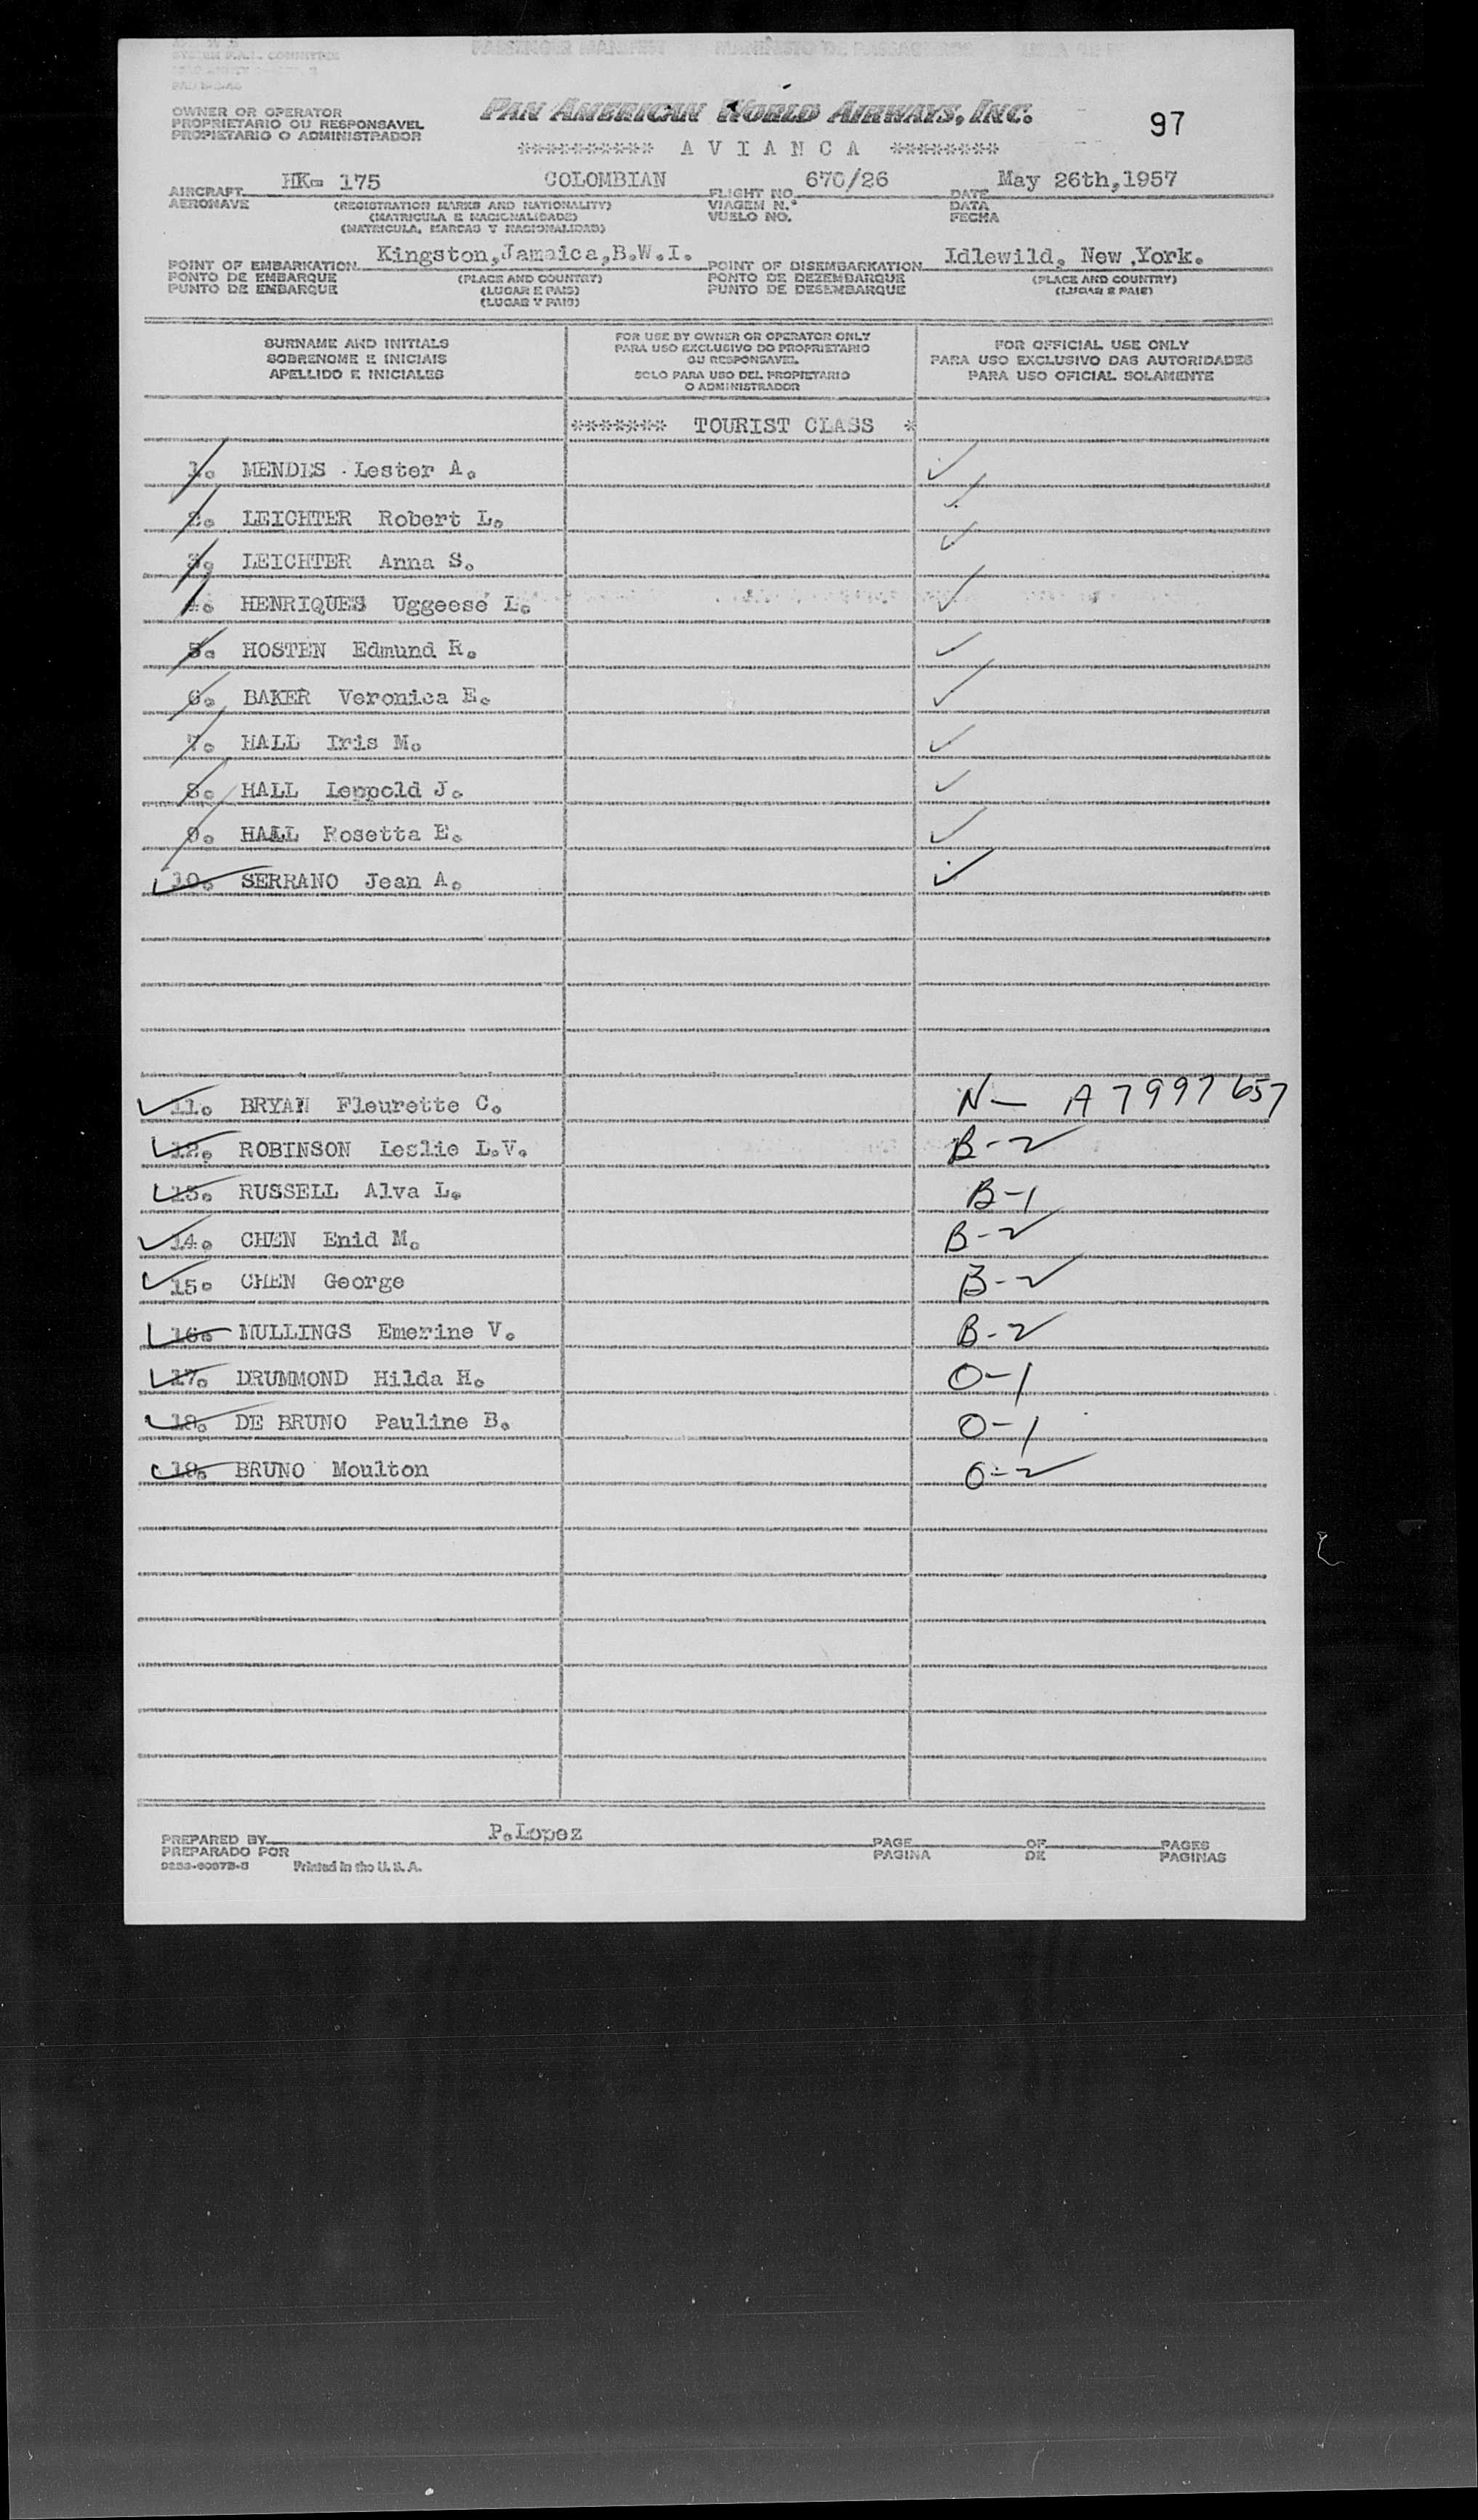 PASSENGER MANIFEST MANIFESTO DE PASSAGEIROS
SYSTEM F.A.L. COMMITTEE
OWNER OR OPERATOR
PROPRIETARIO OU RESPONSAVEL
PROPIETARIO O ADMINISTRADOR
PAN AMERICAN WORLD AIRWAYS, INC.
97
********** A V I A N C A ********
AIRCRAFT HK- 175 COLOMBIAN FLIGHT NO. 670/26 DATE May 26th,1957
AERONAVE (REGISTRATION MARKS AND NATIONALITY) VIAGEM N.º DATA
(MATRICULA E NACIONALIDADE) VUELO NO. FECHA
(MATRICULA, MARCAS Y NACIONALIDAD)
POINT OF EMBARKATION Kingston,Jamaica,B.W.I. POINT OF DISEMBARKATION Idlewild, New York.
PONTO DE EMBARQUE (PLACE AND COUNTRY) PONTO DE DEZEMBARQUE (PLACE AND COUNTRY)
PUNTO DE EMBARQUE (LUGAR E PAIS) PUNTO DE DESEMBARQUE (LUGAR E PAIS)
(LUGAR Y PAIS)
SURNAME AND INITIALS
SOBRENOME E INICIAIS
APELLIDO E INICIALES
FOR USE BY OWNER OR OPERATOR ONLY
PARA USO EXCLUSIVO DO PROPRIETARIO
OU RESPONSAVEL
SOLO PARA USO DEL PROPIETARIO
O ADMINISTRADOR
FOR OFFICIAL USE ONLY
PARA USO EXCLUSIVO DAS AUTORIDADES
PARA USO OFICIAL SOLAMENTE
******* TOURIST CLASS *
1. MENDES Lester A. ✓
2. LEICHTER Robert L. ✓
3. LEICHTER Anna S. ✓
4. HENRIQUES Uggeese L. ✓
5. HOSTEN Edmund R. ✓
6. BAKER Veronica E. ✓
7. HALL Iris M. ✓
8. HALL Leopold J. ✓
9. HALL Rosetta E. ✓
10. SERRANO Jean A. ✓
11. BRYAN Fleurette C. N- A7997657
12. ROBINSON Leslie L.V. B-2
13. RUSSELL Alva L. B-1
14. CHEN Enid M. B-2
15. CHEN George B-2
16. MULLINGS Emerine V. B-2
17. DRUMMOND Hilda H. O-1
18. DE BRUNO Pauline B. O-1
19. BRUNO Moulton O-2
PREPARED BY P.Lopez PAGE OF PAGES
PREPARADO POR PAGINA DE PAGINAS
Printed in the U. S. A.